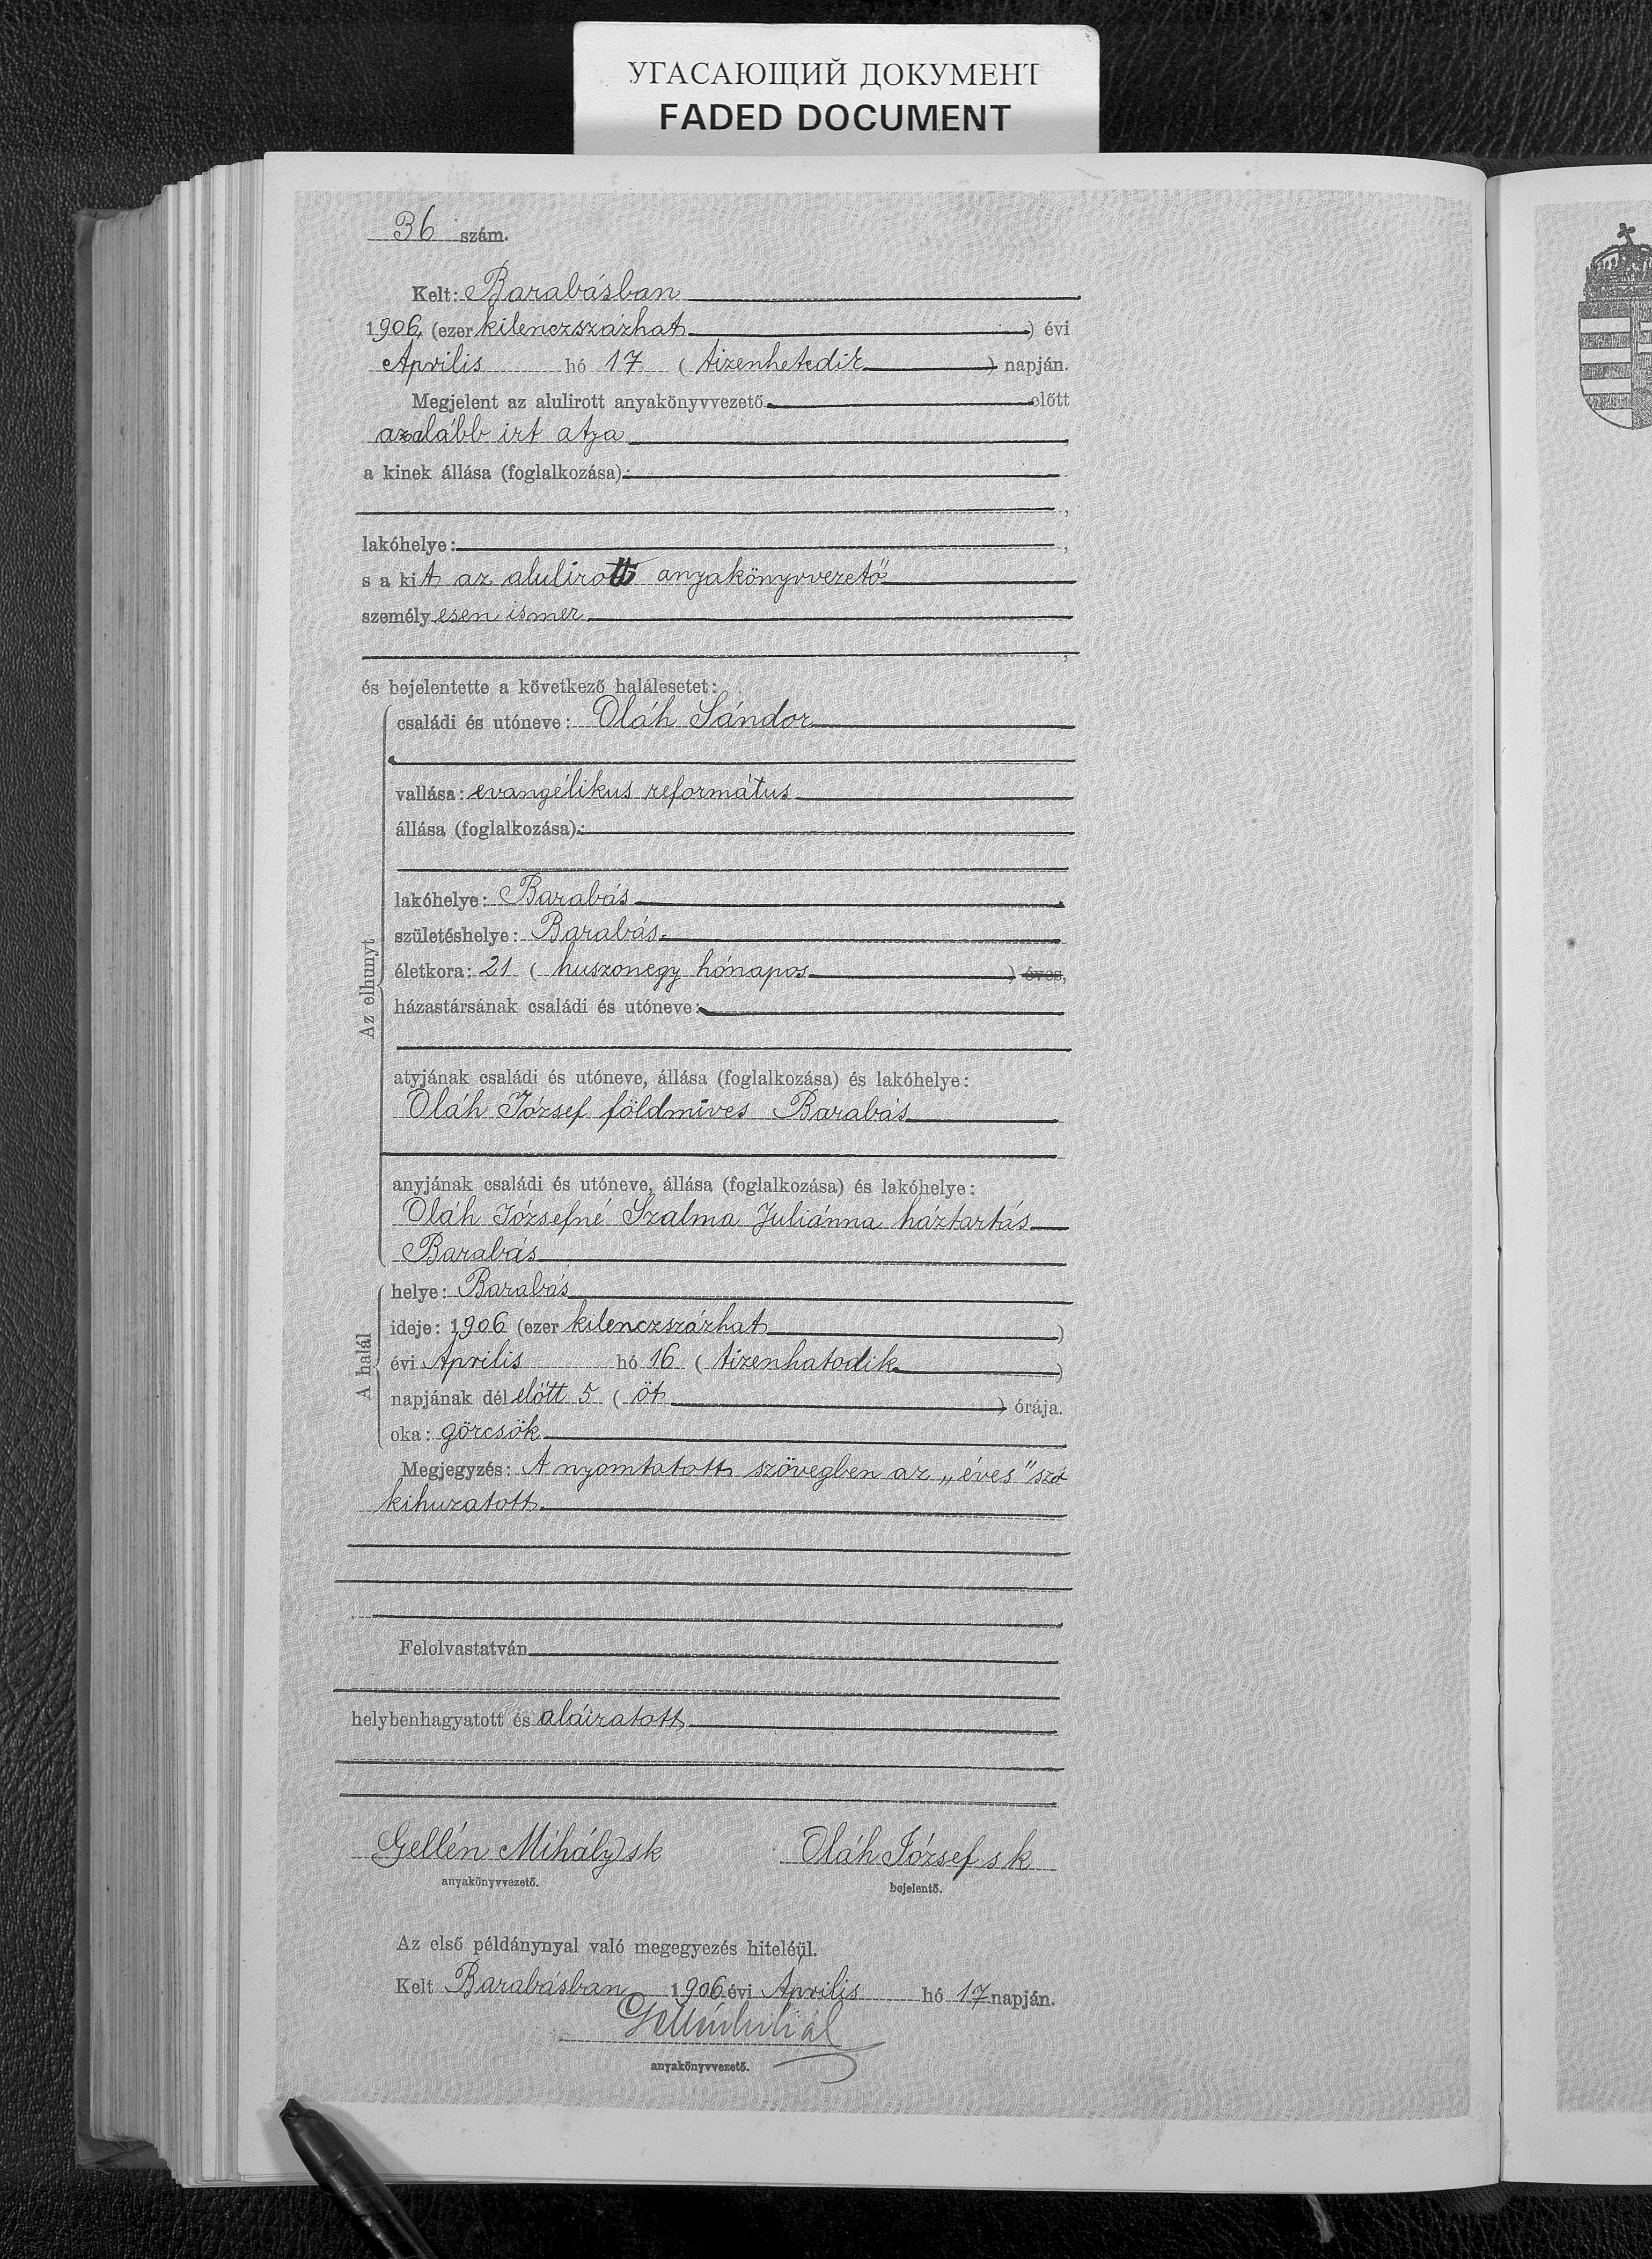 УГАСАЮЩИЙ ДОКУМЕНТ
FADED DOCUMENT
36 szám.
Kelt: Barabásban
1906 (ezer kilenczszázhat) évi
Április hó 17 (tizenhetedik) napján.
Megjelent az alulirott anyakönyvvezető előtt
azalább irt atya
a kinek állása (foglalkozása):
lakóhelye:
s a kit az alulirott anyakönyvvezető
személyesen ismer
és bejelentette a következő halálesetet:
Az elhunyt
családi és utóneve: Oláh Sándor
vallása: evangélikus református
állása (foglalkozása):
lakóhelye: Barabás
születéshelye: Barabás
életkora: 21 (huszonegy hónapos) éves,
házastársának családi és utóneve:
atyjának családi és utóneve, állása (foglalkozása) és lakóhelye:
Oláh József földmíves Barabás
anyjának családi és utóneve, állása (foglalkozása) és lakóhelye:
Oláh Józsefné Szalma Juliánna háztartás
Barabás
A halál
helye: Barabás
ideje: 1906 (ezer kilenczszázhat)
évi Április hó 16 (tizenhatodik)
napjának délelőtt 5 (öt) órája.
oka: görcsök
Megjegyzés: A nyomtatott szövegben az „éves" szó
kihuzatott
Felolvastatván
helybenhagyatott és aláiratott
Gellén Mihály sk Oláh József sk
anyakönyvvezető. bejelentő.
Az első példánynyal való megegyezés hiteléül.
Kelt Barabásban 1906 évi Április hó 17 napján.
Gellén Mihál
anyakönyvvezető.